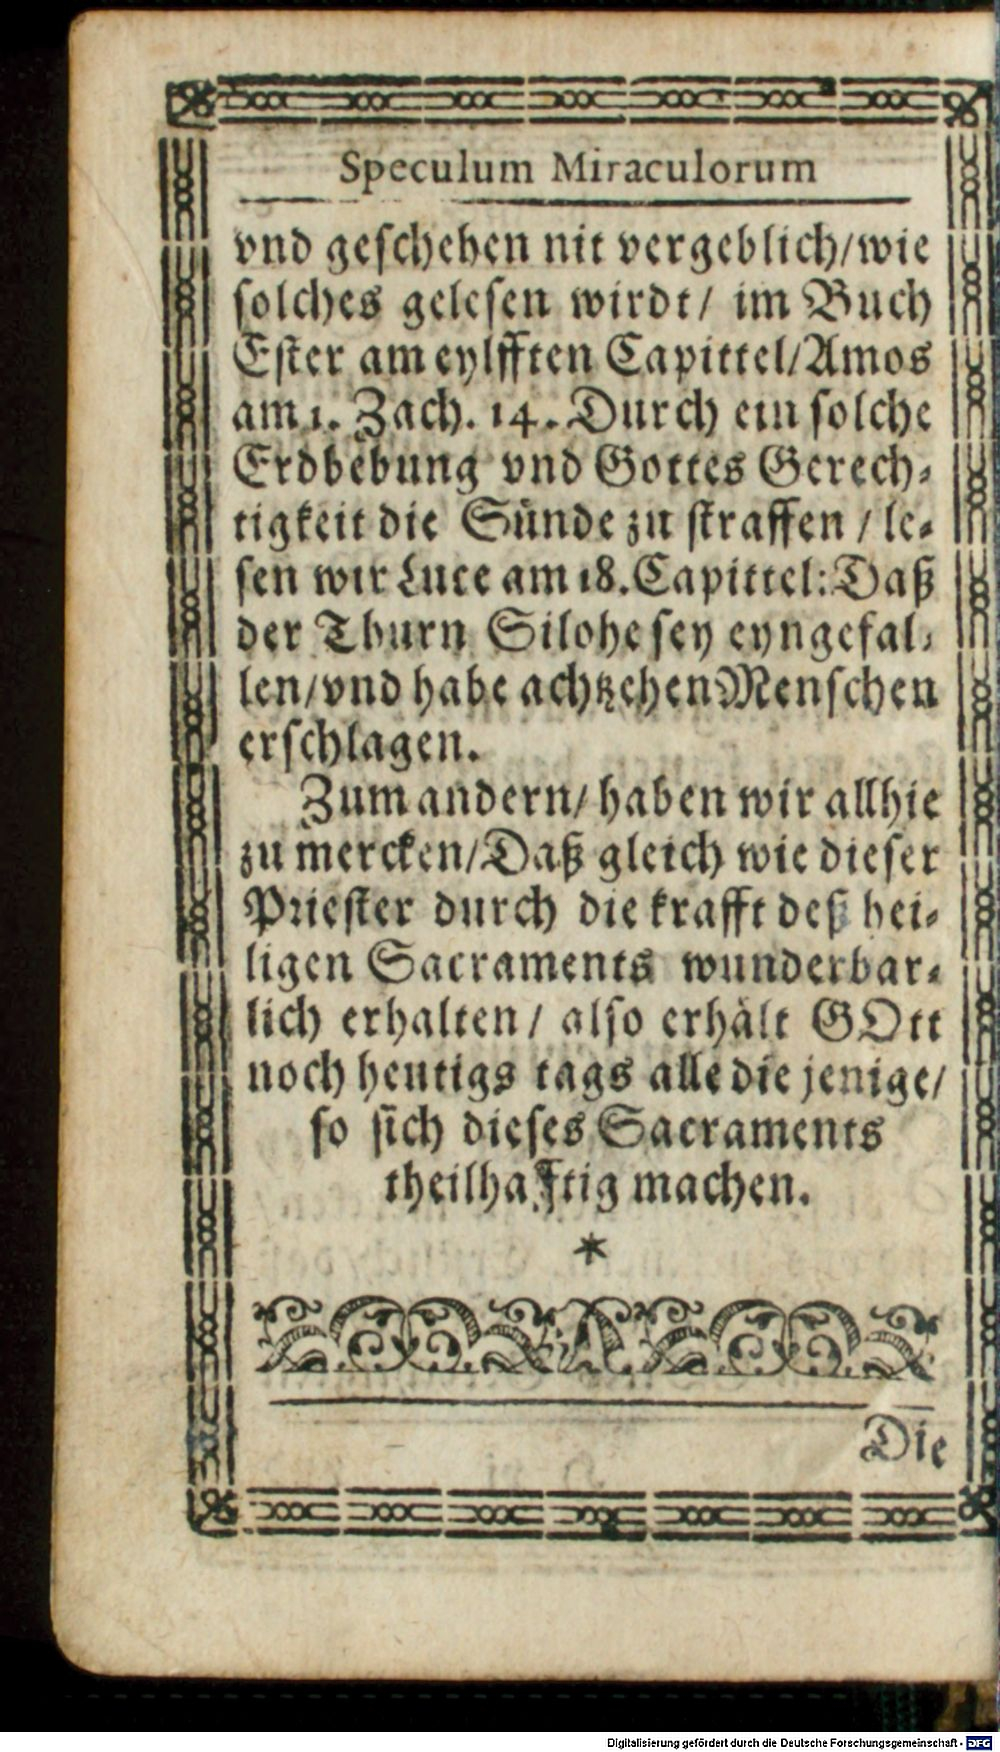 Speculum Miraculorum
vnd geschehen nit vergeblich/wie
solches gelesen wirdt/ im Buch
Ester am eylfften Capittel/Amos
am 1. Zach. 14. Durch ein solche
Erdbebung vnd Gottes Gerech-
tigkeit die Sünde zu straffen / le-
sen wir Luce am 18. Capittel: Daß
der Thurn Silohe sey eyngefal-
len/vnd habe achtzehen Menschen
erschlagen.
Zum andern/ haben wir allhie
zu mercken/Daß gleich wie dieser
Priester durch die krafft deß hei-
ligen Sacraments wunderbar-
lich erhalten/ also erhält GOtt
noch heutigs tags alle die jenige/
so sich dieses Sacraments
theilhafftig machen.
*
Die
Digitalisierung gefördert durch die Deutsche Forschungsgemeinschaft - DFG